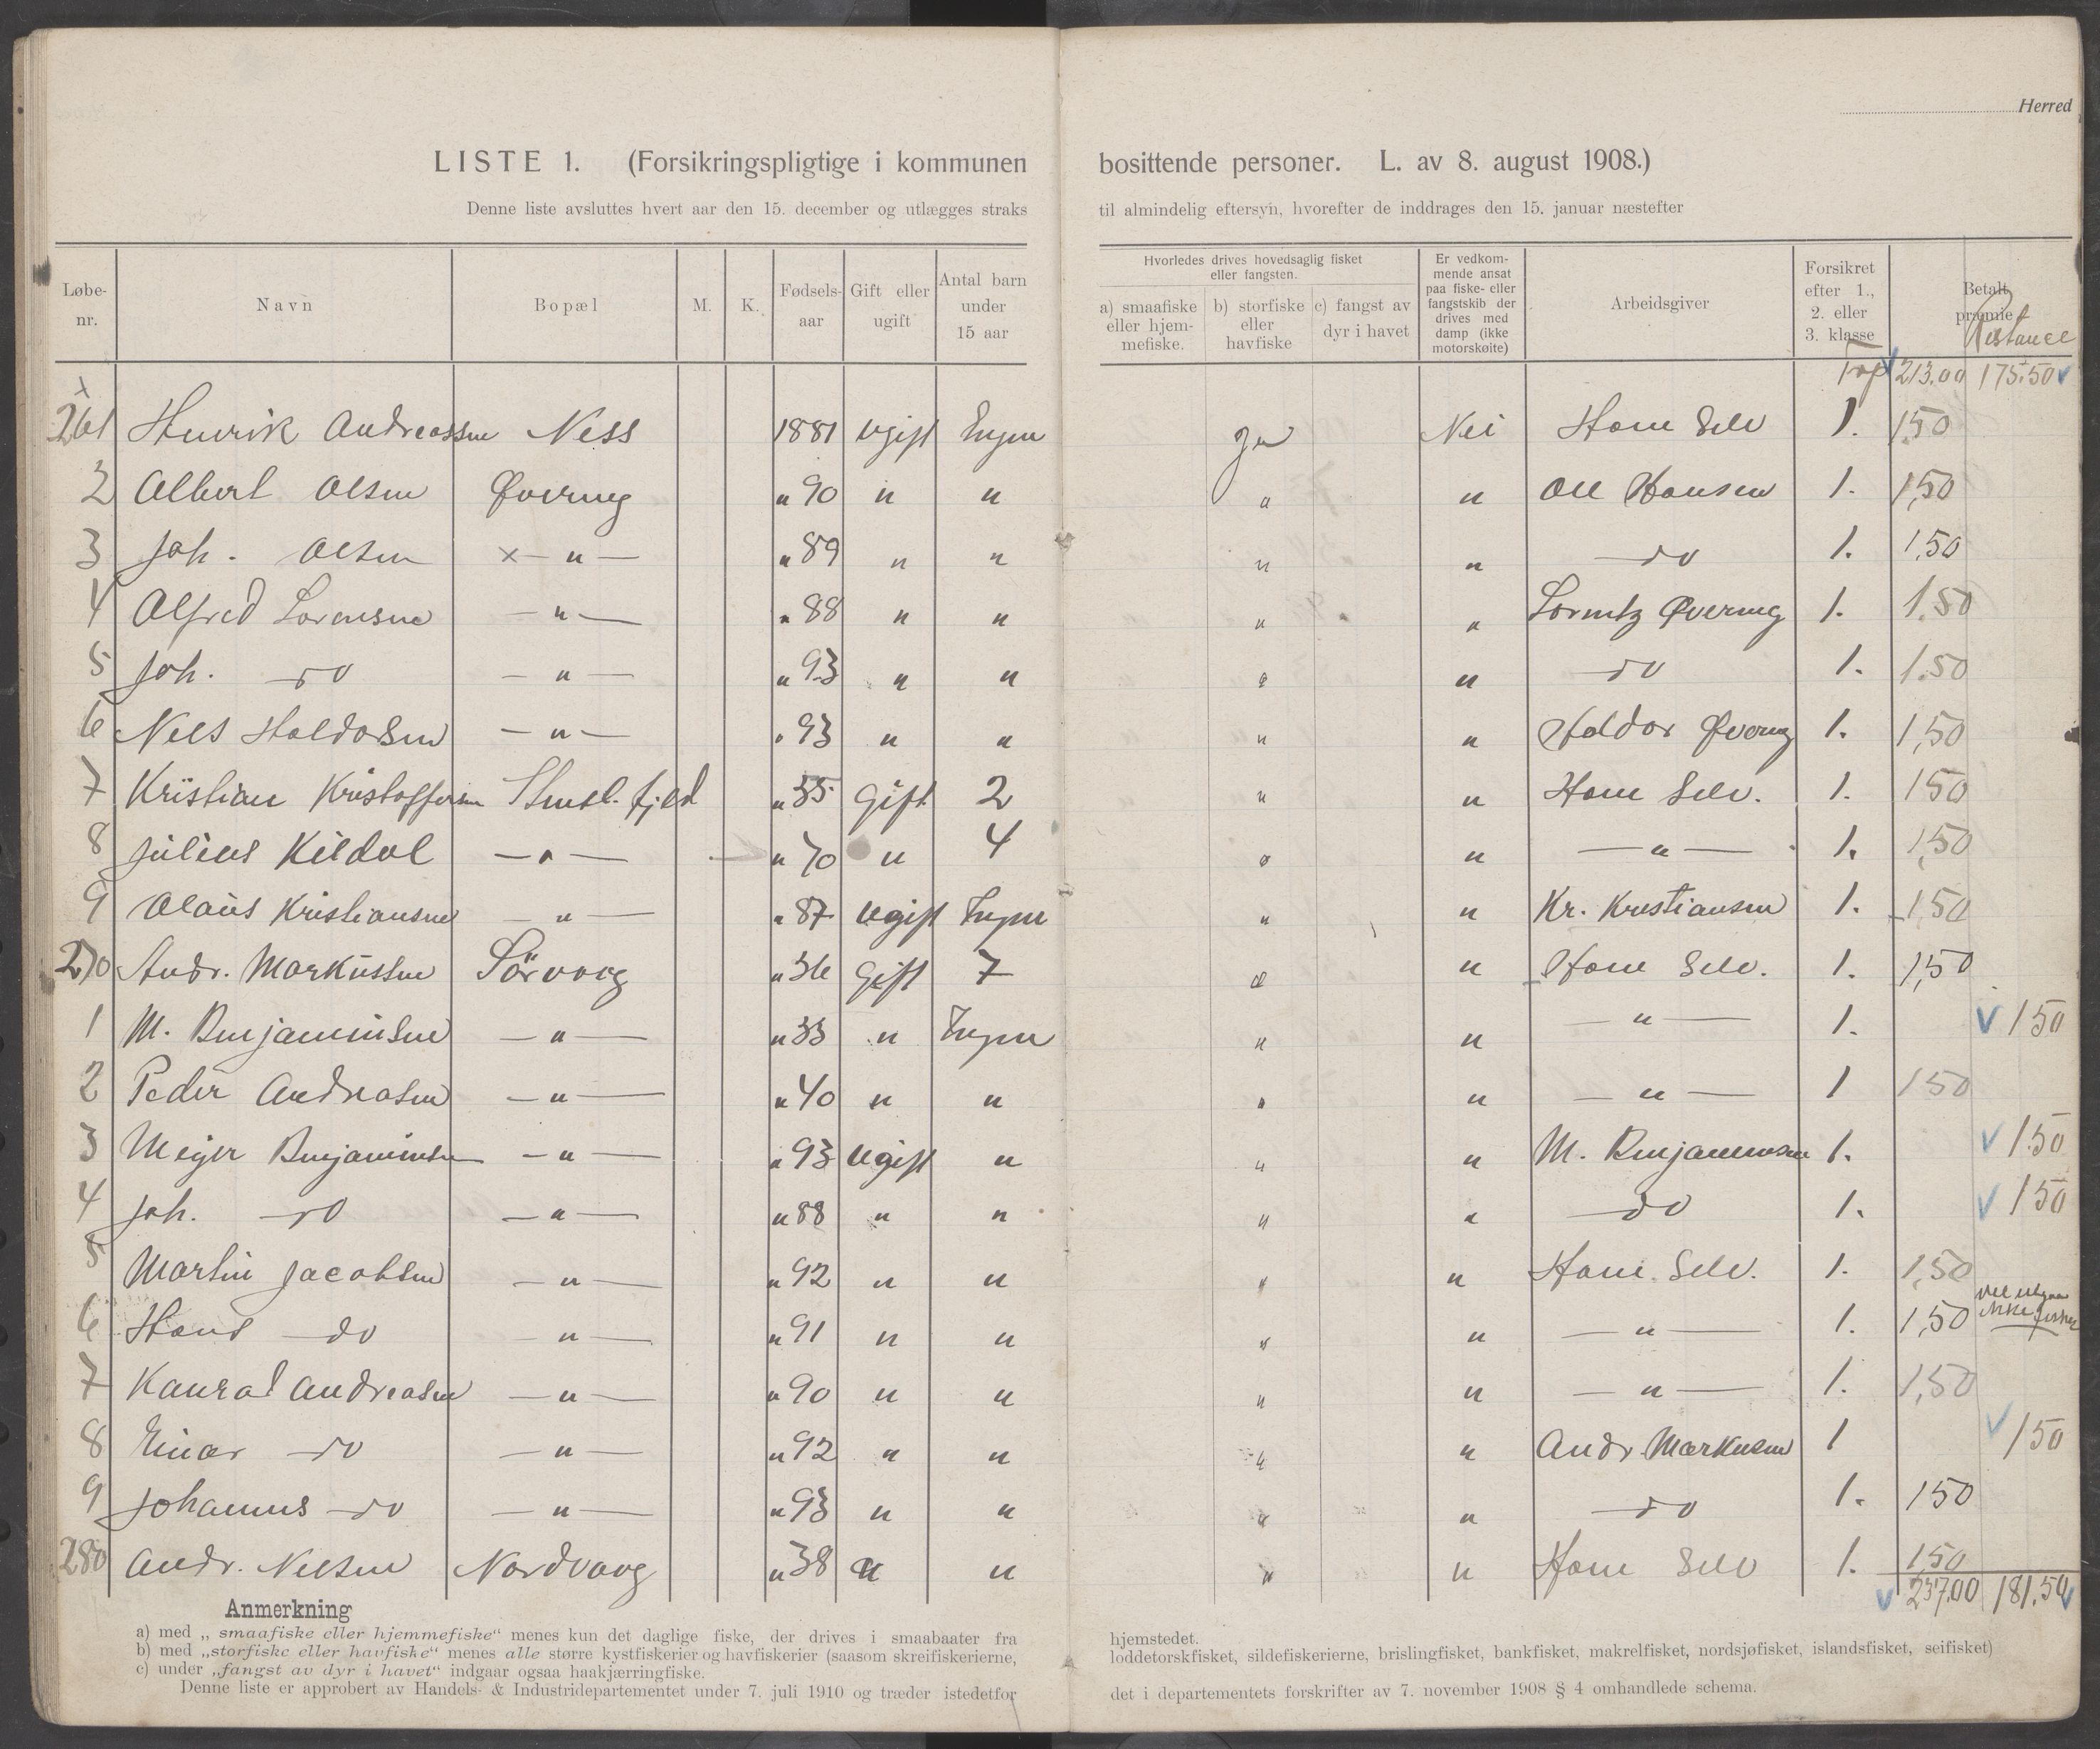 Herred
LISTE 1. (Forsikringspligtige i kommunen bosittende personer. L. av 8. august 1908.)
Denne liste avsluttes hvert aar den 15. december og utlægges straks til almindelig eftersyn, hvorefter de inddrages den 15. januar næstefter
Løbe-nr. Navn Bopæl M. K. Fødsels-aar Gift eller ugift Antal barn under 15 aar Hvorledes drives hovedsaglig fisket eller fangsten. a) smaafiske eller hjem-mefiske. b) storfiske eller havfiske c) fangst av dyr i havet Er vedkom-mende ansat paa fiske- eller fangstskib der drives med damp (ikke motorskøite) Arbeidsgiver Forsikret efter 1., 2. eller 3. klasse Betalt præmie Restance
213.00 175.50
261 Henrik Andreassen Ness 1881 ugift Ingen Ja Nei Ham Selv 1. 1,50
2 Albert Olsen Øvereng " 90 " " " " Ole Hansen 1. 1,50
3 Joh. Olsen × — " — " 89 " " " " do 1. 1,50
4 Alfred Lorensen — " — " 88 " " " " Lorentz Øvereng 1. 1.50
5 Joh. do — " — " 93 " " " " do 1. 1.50
6 Nils Haldorsen — " — " 93 " " " " Haldor Øvereng 1. 1,50
7 Kristian Kristoffersen " 35 Gift 2 " " Ham Selv. 1. 150
8 Julius Kildal — " — " 70 " 4 " " — " — 1. 1,50
9 Olaus Kristiansen — " — " 87 Ugift Ingen " " Kr. Kristiansen 1. 1,50
270 Andr. Markussen Sörvaag " 36 Gift 7 " " Ham Selv. 1. 1,50
1 M. Benjaminsen — " — " 33 " Ingen " " — " — 1. 150
2 Peder Andreasen — " — " 40 " " " " — " — 1 150
3 Meyer Benjaminsen — " — " 93 Ugift " " " M. Benjaminsen 1. 1.50
4 Joh. do — " — " 88 " " " " do 1. 150
5 Martin Jacobsen — " — " 92 " " " " Ham Selv. 1. 1,50
6 Hans do — " — " 91 " " " " — " — 1. 1,50 ikke fisker
7 Konrad Andreasen — " — " 90 " " " " — " — 1. 1,50
8 Einar do — " — " 92 " " " " Andr. Markusen 1 150
9 Johannes do — " — " 93 " " " " do 1. 150
280 Andr. Nilsen Nordvaag " 38 " " " " Ham Selv 1. 1,50
237.00 181.50
Anmerkning
a) med „smaafiske eller hjemmefiske“ menes kun det daglige fiske, der drives i smaabaater fra hjemstedet.
b) med „storfiske eller havfiske“ menes alle større kystfiskerier og havfiskerier (saasom skreifiskerierne, loddetorskfisket, sildefiskerierne, brislingfisket, bankfisket, makrelfisket, nordsjøfisket, islandsfisket, seifisket)
c) under „fangst av dyr i havet“ indgaar ogsaa haakjærringfiske.
Denne liste er approbert av Handels- & Industridepartementet under 7. juli 1910 og træder istedetfor det i departementets forskrifter av 7. november 1908 § 4 omhandlede schema.